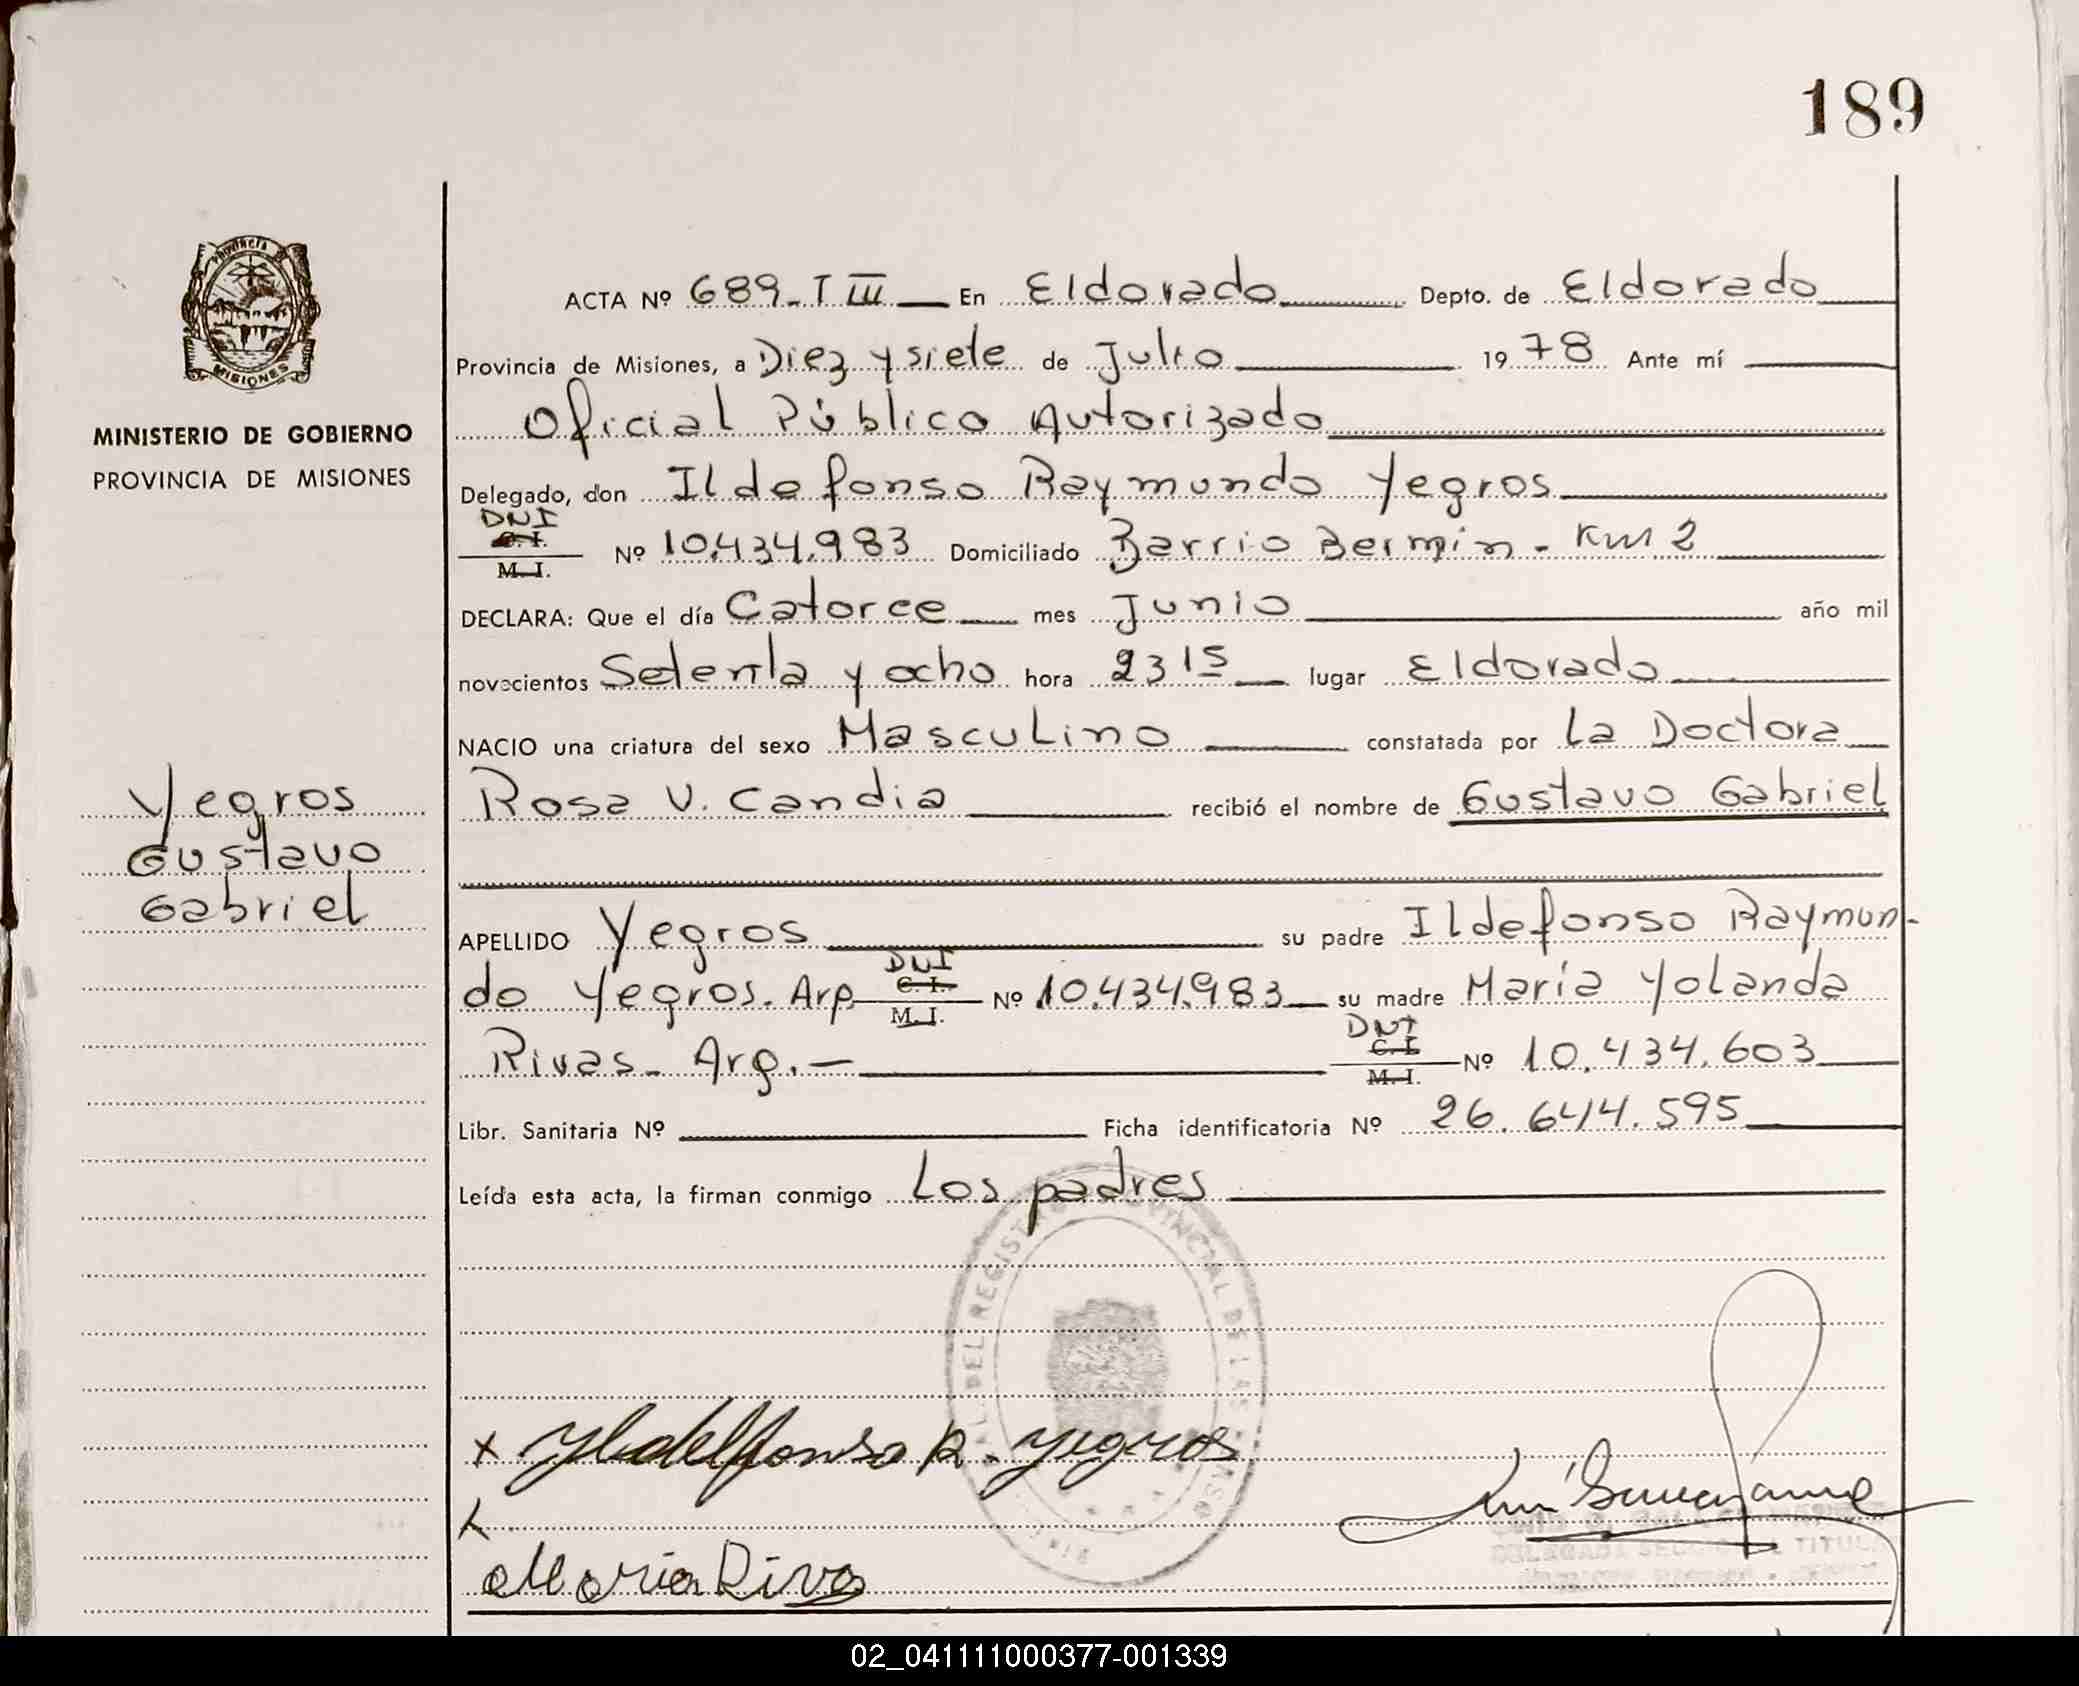 189
Provincia
MISIONES
MINISTERIO DE GOBIERNO
PROVINCIA DE MISIONES
Yegros
Gustavo
Gabriel
ACTA Nº 689-T III En Eldorado Depto. de Eldorado
Provincia de Misiones, a Diez y siete de Julio 1978 Ante mí
Oficial Público Autorizado
Delegado, don Ildefonso Raymundo Yegros
DNI
C. I.
M. I. Nº 10.434.983 Domiciliado Barrio Bermin - Km 2
DECLARA: Que el día Catorce mes Junio año mil
novecientos Setenta y ocho hora 23 15 lugar Eldorado
NACIO una criatura del sexo Masculino constatada por La Doctora
Rosa V. Candia recibió el nombre de Gustavo Gabriel
APELLIDO Yegros su padre Ildefonso Raymun-
do Yegros. Arg DNI C. I. M. I. Nº 10.434.983 su madre María Yolanda
Rivas - Arg. - DNI C. I. M. I. Nº 10.434.603
Libr. Sanitaria Nº Ficha identificatoria Nº 26.644.595
Leída esta acta, la firman conmigo Los padres
DEL REGISTRO PROVINCIAL DE LAS
x Yldelfonso R. Yegros
x
Maria Rivas
02_041111000377-001339